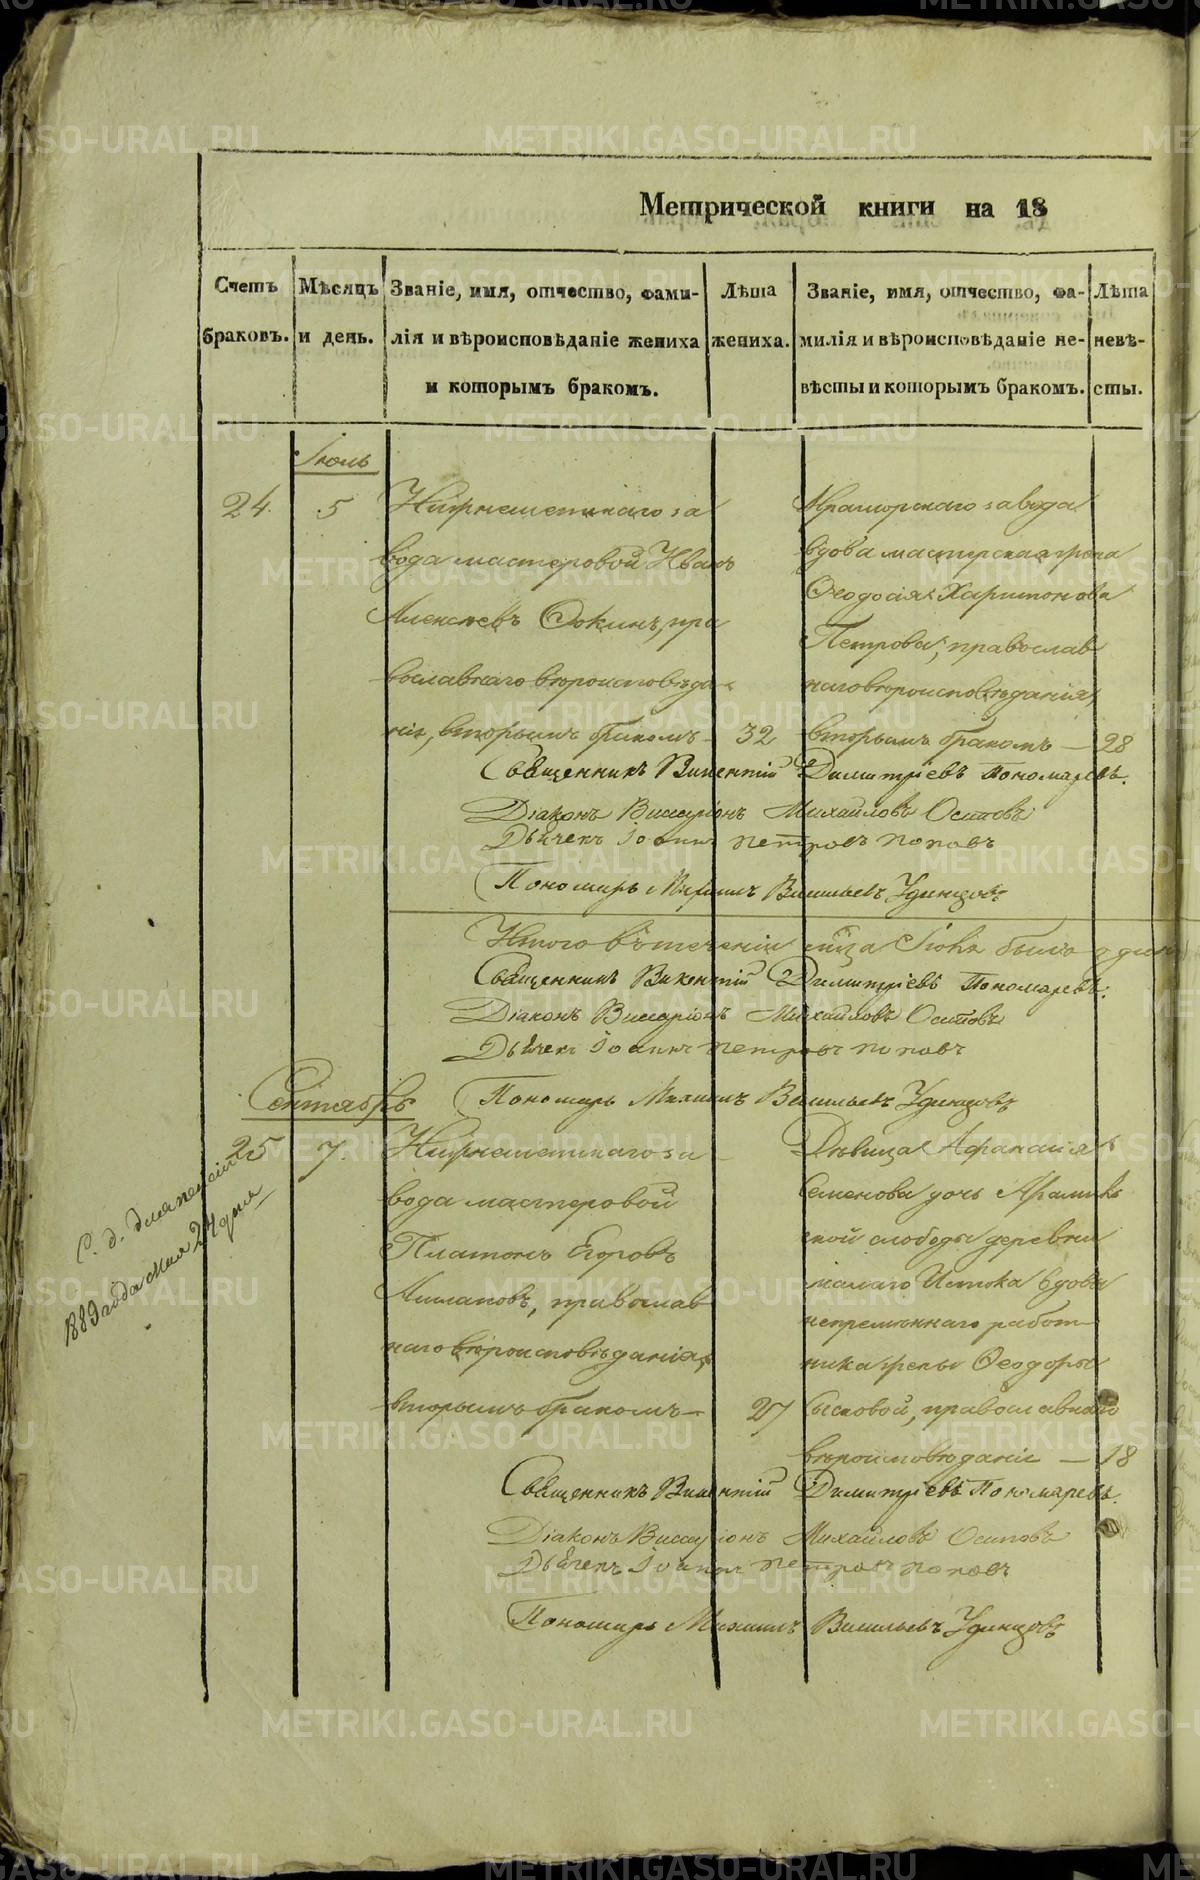 Метрической книги на 18
Счетъ браковъ.
Мѣсяцъ и день.
Званіе, имя, отчество, фами-
лія и вѣроисповѣданіе жениха
и которымъ бракомъ.
Лѣта
жениха.
Званіе, имя, отчество, фа-
милія и вѣроисповѣданіе не-
вѣсты и которымъ бракомъ.
Лѣта
невѣ-
сты.
Іюль
24. 5
Нижнеисетскаго за
вода мастеровой Иванъ
Алексѣевъ Ѳокинъ, пра
вославнаго вѣроисповѣда
нія, вторымъ бракомъ 32
Мраморскаго завода
вдова мастерская жена
Ѳеодосія Харитонова
Петрова, православ
наго вѣроисповѣданія,
вторымъ бракомъ — 28
Священникъ Викентій Димитріевъ Пономаревъ.
Діаконъ Виссаріонъ Михайловъ Осиповъ
Дьячекъ Іоаннъ Петровъ Поповъ
Пономарь Михаилъ Васильевъ Удинцовъ
Итого въ теченіи мѣсца Іюля было одинъ
Священникъ Викентій Димитріевъ Пономаревъ.
Діаконъ Виссаріонъ Михайловъ Осиповъ
Дьячекъ Іоаннъ Петровъ Поповъ
Пономарь Михаилъ Васильевъ Удинцовъ
Сентябрь
25 7.
Нижнеисетскаго за
вода мастеровой
Платонъ Егоровъ
православ
наго вѣроисповѣданія,
вторымъ бракомъ — 27
Дѣвица Афанасія
Семенова дочь Арамиль
ской слободы деревни
малаго Истока вдовы
непремѣннаго работ
ника жены Ѳеодоры
Сысковой, православнаго
вѣроисповѣданія — 18
Священникъ Викентій Димитріевъ Пономаревъ.
Діаконъ Виссаріонъ Михайловъ Осиповъ
Дьячекъ Іоаннъ Петровъ Поповъ
Пономарь Михаилъ Васильевъ Удинцовъ
С. д. для пенсіи
1889 года мая 24 дня
METRIKI.GASO-URAL.RU